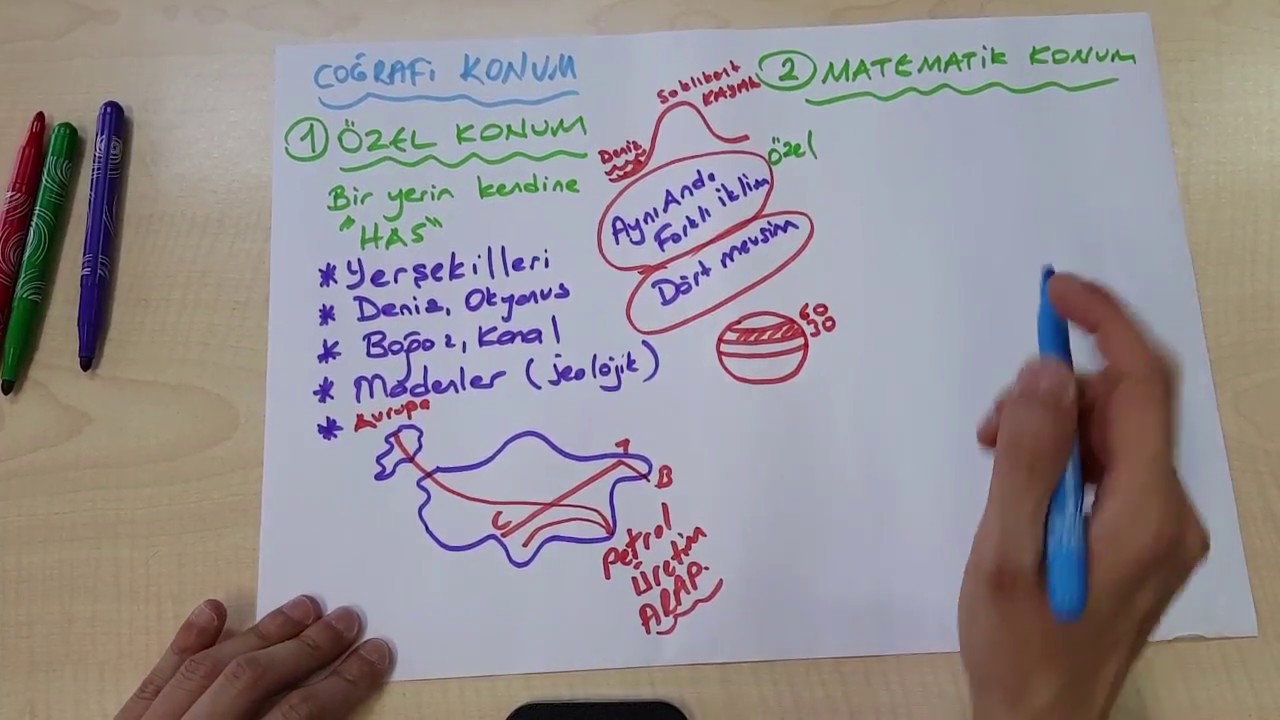 COĞRAFİ KONUM
1 ÖZEL KONUM
Bir yerin kendine
"HAS"
* Yerşekilleri
* Deniz, Okyanus
* Boğaz, Kanal
* Madenler (jeolojik)
* Avrupa
T
B
C
Petrol
Üretim
ARAP.
KAYAK
Deniz
Özel
Aynı Anda
Farklı iklim
Dört mevsim
60
30
2 MATEMATİK KONUM